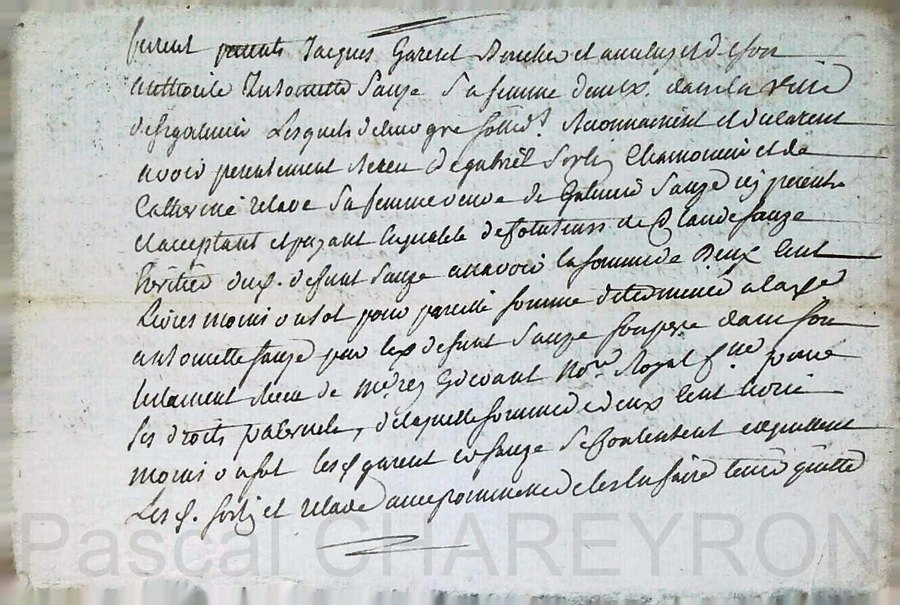 furent presents Jacques Garent Boucher et avec luy et de son
authorité Antoinette Sauze sa femme dem.t dans la ville
de st galmier Lesquels de leur gre sollid.t Reconnaissent et declarent
avoir presentement Receu de gabriël forly Chamoinier et de
Catherine relave sa femme veuve de Galmier Sauze icy presents
et acceptant et payant En qualité de
heritier dud. defunt Sauze a savoir la somme de Deux Cent
Livres moins un sol pour pareille somme
antoinette sauze par led defunt Sauze son pere dans son
testament Receu de M.e Not.re Royal pour
ses droits paternels, de laquelle somme de deux Cent livres
moins un sol lesd garent et sauze se Contentent et quittent
Lesd. forly et relave avec promesse de les en faire tenir quitte
Pascal CHAREYRON